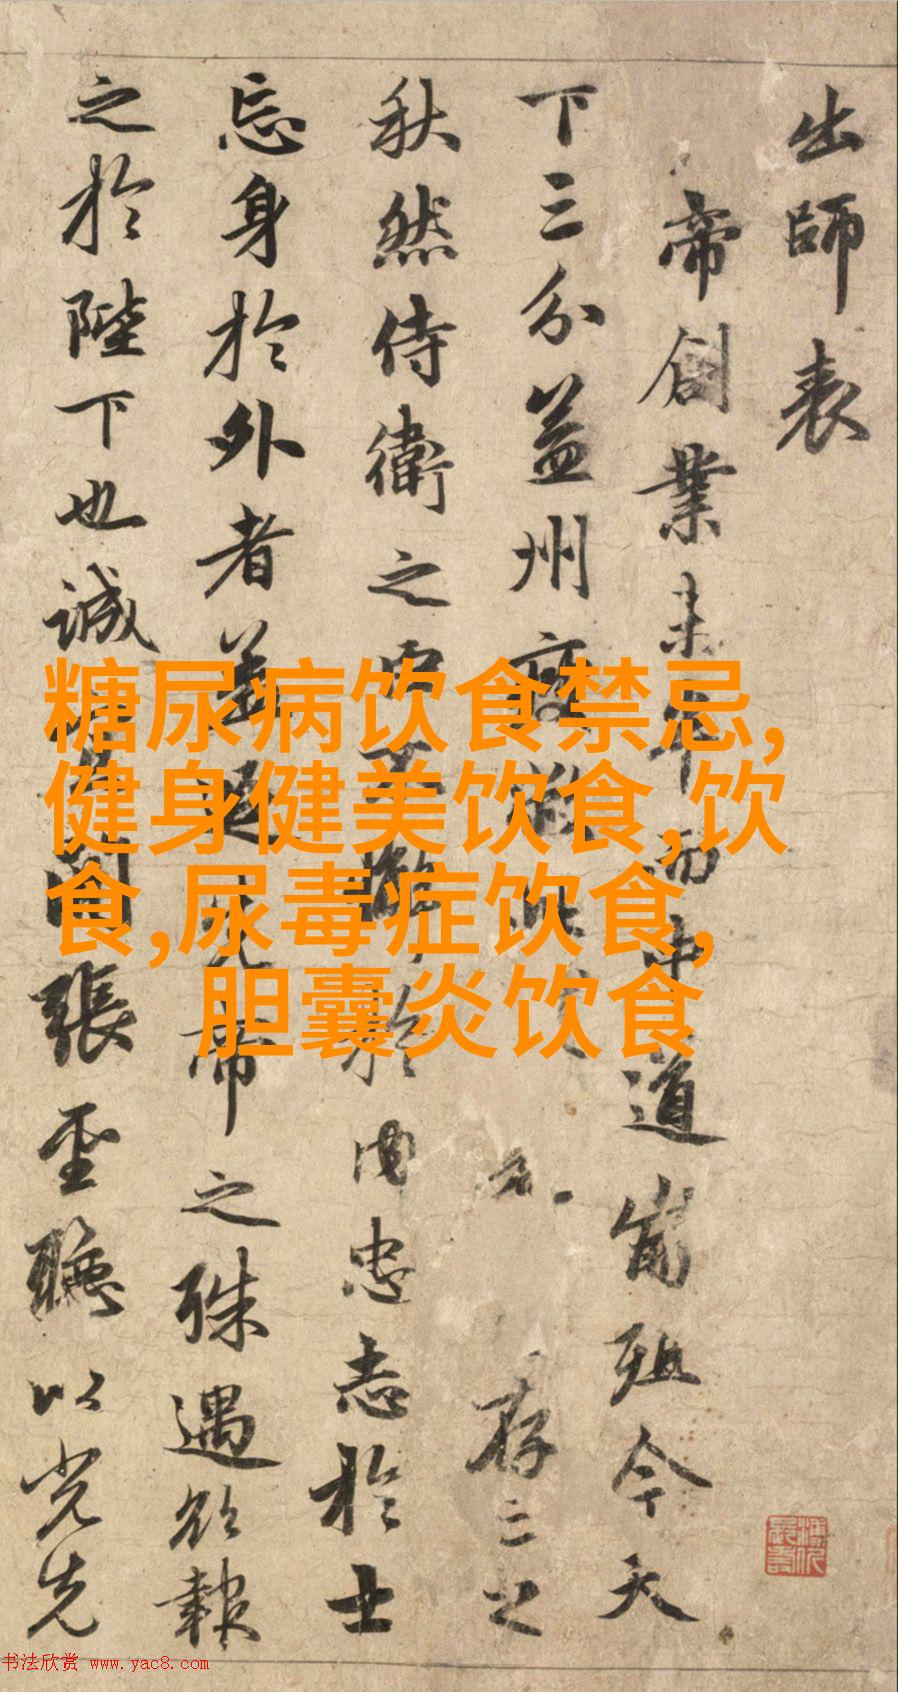 出師表
帝創業未半而中道崩殂今天
下三分益州疲存亡之
秋然侍衛之臣不懈於内忠志於士
忘身於外者蓋追先帝之殊遇欲報
之於陛下也誠宜開張聖聽以光先
糖尿病饮食禁忌,
健身健美饮食,饮
食,尿毒症饮食,
胆囊炎饮食
书法欣赏 www.yac8.com